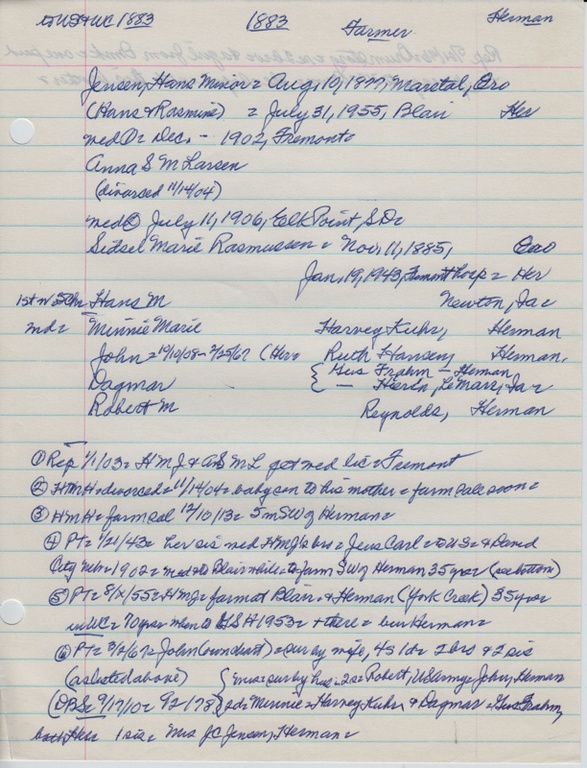 to US & WC 1883 1883 Farmer Herman
Jensen, Hans Minor = Aug, 10, 1877, Marstal, Æro
(Hans & Rasmine) = July 31, 1955, Blair Her
med① = Dec. - 1902, Fremont =
Anna S M Larsen
(divorced 11/14/04)
med② July 11, 1906, Elk Point, S.D.
Sidsel Marie Rasmussen = Nov, 11, 1885,
Jan, 19, 1943, Fremont hosp = Her
1st m Hans M Newton, Ia =
md = Minnie Marie Harvey Kuhr, Herman
John = 1910/08 - 2/25/67 (Her = Ruth Hansen, Herman,
Dagmar { Gus Frahm - Herman
— LeMars, Ia =
Robert M Reynolds, Herman
① Rep 1/1/03 = H M J & A S M L get med lic = Fremont
② HMH = divorced = 11/14/04 = baby son to his mother = farm sale soon =
③ HMH = farm sal 12/10/13 = 5 m SW of Herman =
④ PT = 1/21/43 = her sis med HMJ's bro = Jens Carl = to US = & David
City Neb = 1902 = med & to Blair while = to farm SW of Herman 35 yrs = (see bottom)
⑤ PT = 8/x/55 = HMJ = farm at Blair & Herman (York Creek) 35 yrs =
in WC = 70 years when to 1953 = & there = bur Herman =
⑥ PT = 3/2/67 = John = sur by wife, 4 s 1 d = 2 bro & 2 sis
(as listed above) { sur by hus = 2 s = Robert, US Army = John, Herman
9/17/10 = 92/178 2 d = Minnie = Harvey Kuhr & Dagmar = Gus Frahm,
both Her = 1 sis = Mrs J C Jensen, Herman =